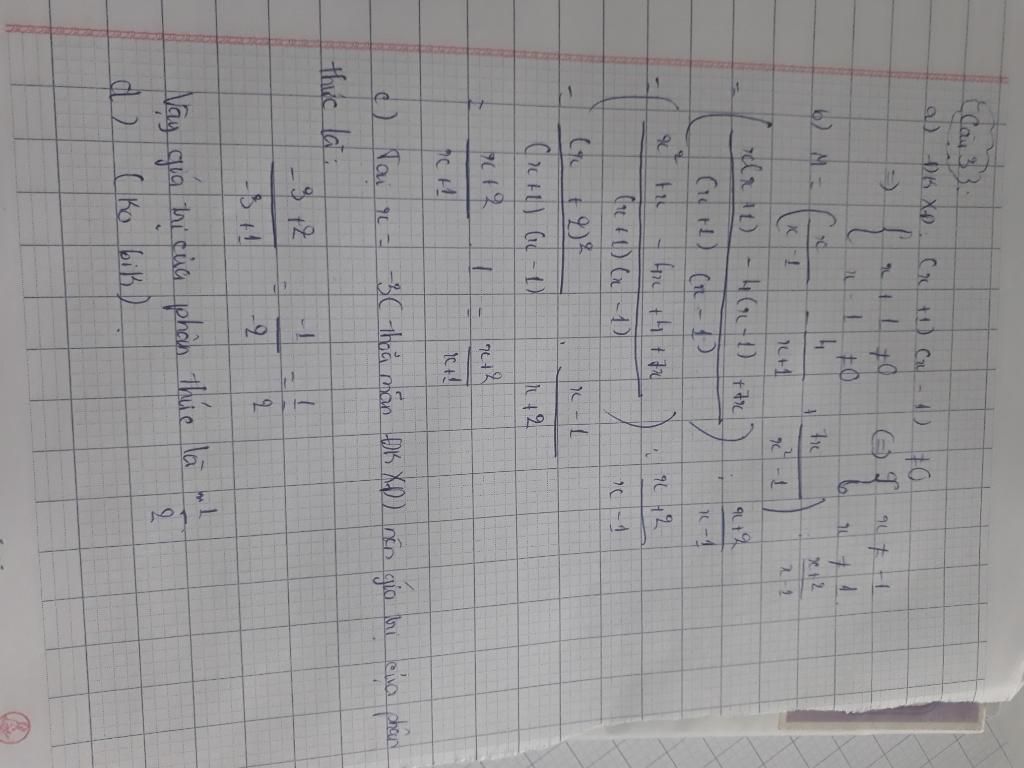 (Câu 3):
a) ĐKXĐ: (x + 1) (x - 1) ≠ 0
=> { x + 1 ≠ 0 (=) { x ≠ -1
x - 1 ≠ 0 x ≠ 1
b) M = (x/x-1 - 4/x+1 + 7x/x²-1) :
= (x(x+1) - 4(x-1) + 7x/(x+1) (x-1)) : x+2/x-1
= (x² + x - 4x + 4 + 7x/(x+1) (x-1)) : x+2/x-1
= (x + 2)²/(x+1) (x-1) . x-1/x+2
= x+2/x+1 . 1 = x+2/x+1
c) Tại x = -3 (thỏa mãn ĐKXĐ) nên giá trị của phân
thức là:
-3+2/-3+1 = -1/-2 = 1/2
Vậy giá trị của phân thức là 1/2
d) (Ko biK).